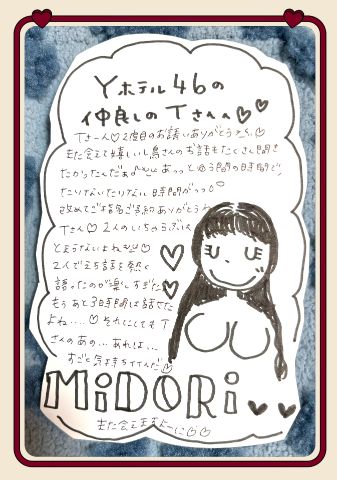 Yホテル46の
仲良しのTさんへ♡♡
Tさーん♡2度目のお誘いありがとうございます♡
また会えて嬉しいし鳥さんのお話もたくさん聞き
たかったんだぁ あっっとゆう間の時間で
たりないたりない時間がっっ
改めてご指名ご予約ありがとう
Tさん♡2人のいちゃらぶは
とまらないよね♡
2人でえち話を熱く
語ったのが楽しすぎた
もうあと3時間は話せた
よね....♡それにしてもT
さんのあの...あれは...
すごく気持ちイイんだ♡
MiDORi
また会えますよーに♡♡